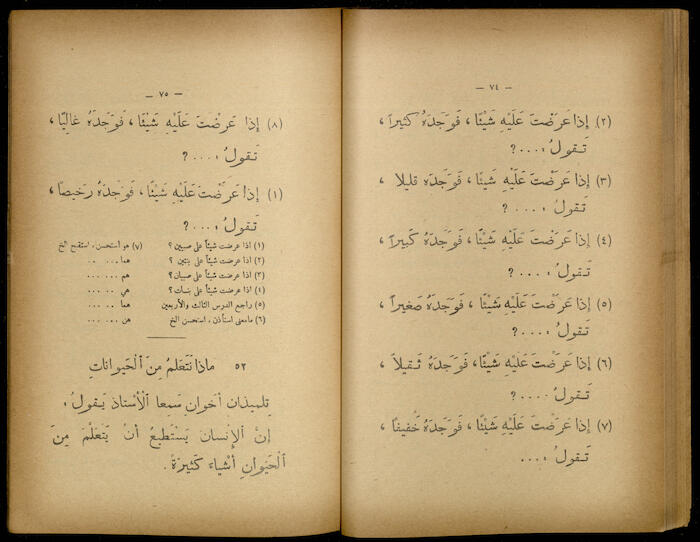 — ٧٤ —
(٢) إِذا عَرَضْتَ عَلَيْهِ شَيْئًا ، فَوَجَدَهُ كَثِيراً ،
تَقولُ : .... ؟
(٣) إِذا عَرَضْتَ عَلَيْهِ شَيْئًا ، فَوَجَدَهُ قليلا ،
تَقولُ : .... ؟
(٤) إِذا عَرَضْتَ عَلَيْهِ شَيْئًا ، فَوَجَدَهُ كَبيراً ،
تَقولُ : .... ؟
(٥) إِذا عَرَضْتَ عَلَيْهِ شَيْئًا ، فَوَجَدَهُ صَغيراً ،
تَقولُ : .... ؟
(٦) إِذا عَرَضْتَ عَلَيْهِ شَيْئًا ، فَوَجَدَهُ ثَقيلاً ،
تَقولُ .... ؟
(٧) إِذا عَرَضْتَ عَلَيْهِ شَيْئًا ، فَوَجَدَهُ خَفيفًا ،
تَقولُ : ...
— ٧٥ —
(٨) إِذا عَرَضْتَ عَلَيْهِ شَيْئًا ، فَوَجَدَهُ غالِيًا ،
تَقولُ : .... ؟
(١) إِذا عَرَضْتَ عَلَيْهِ شَيْئًا ، فَوَجَدَهُ رَخيصًا ،
تَقولُ : .... ؟
(١) اذا عرضت شيئاً على صبيين ؟ (٧) هو استحسن ، استقبح الخ
(٢) اذا عرضت شيئاً على بنتين ؟ هما ... ...
(٣) اذا عرضت شيئاً على صبيان ؟ هم ... ...
(٤) اذا عرضت شيئاً على بنات ؟ هي ... ...
(٥) راجع الدرس الثالث والأربعين هما ... ...
(٦) مامعنى استأذن ، استحسن الخ هن ... ...
٥٢ ماذا نَتَعَلَّمُ مِنَ الْحَيَوانَاتِ
تِلميذان أَخَوانِ سَمِعا الْأُسْتاذ يَقولُ :
إِنَّ الْإِنْسانَ يَسْتَطيعُ أَنْ يَتَعَلَّمَ مِنَ
الْحَيَوانِ أَشْياءَ كَثيرَةً .